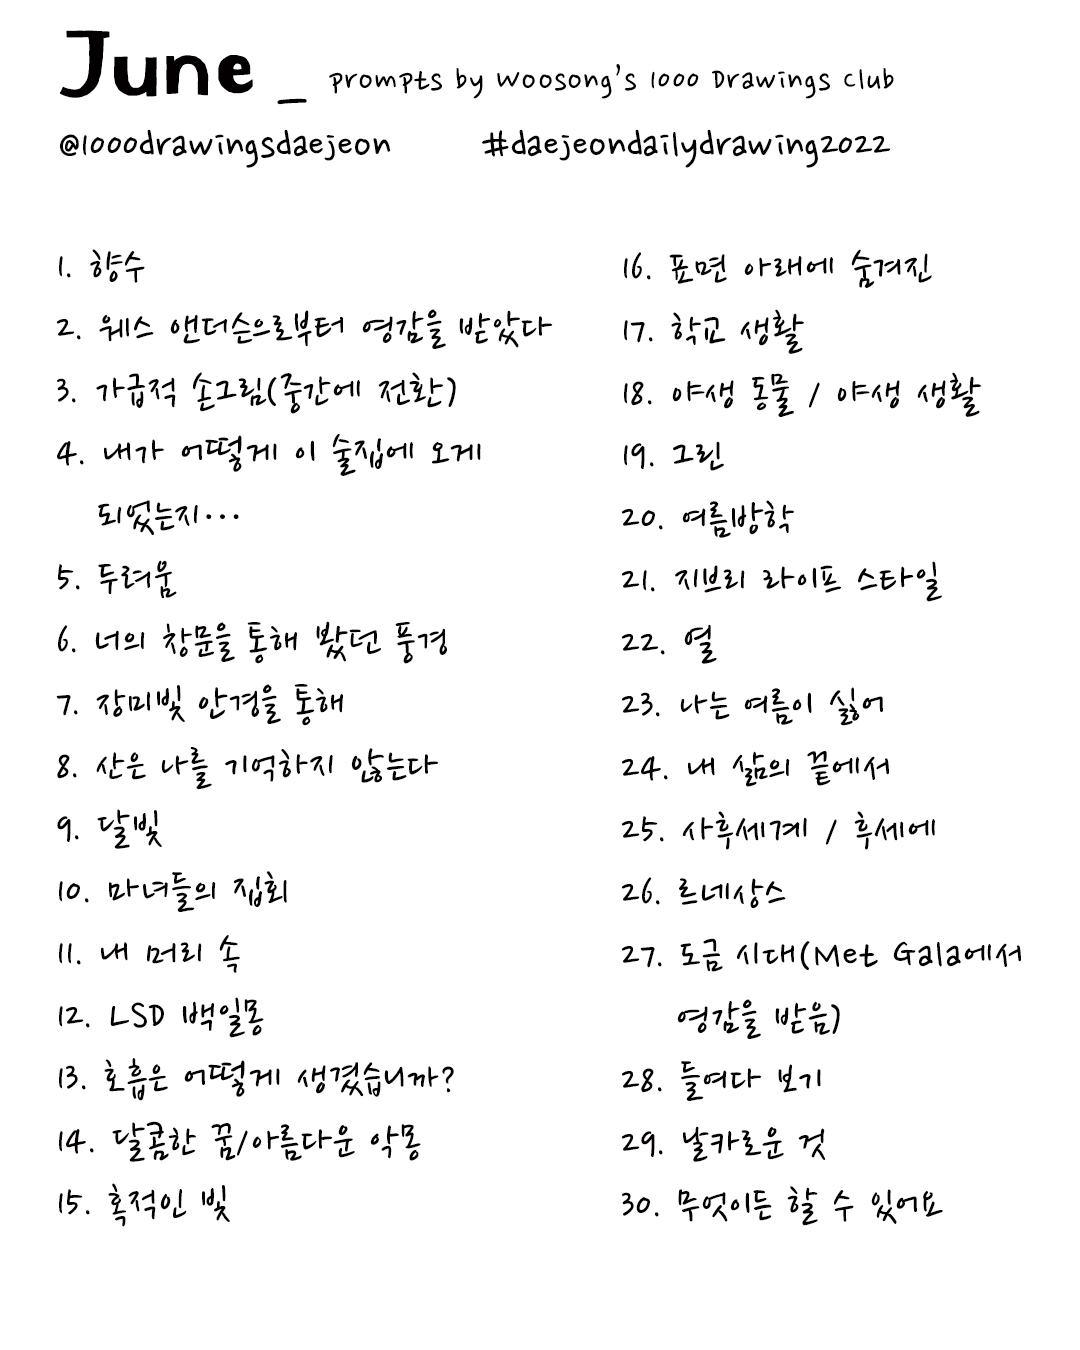 June _ prompts by Woosong's 1000 Drawings Club
@1000drawingsdaejeon #daejeondailydrawing2022
1. 향수
2. 웨스 앤더슨으로부터 영감을 받았다
3. 가급적 손그림(중간에 전환)
4. 내가 어떻게 이 술집에 오게
되었는지...
5. 두려움
6. 너의 창문을 통해 봤던 풍경
7. 장미빛 안경을 통해
8. 산은 나를 기억하지 않는다
9. 달빛
10. 마녀들의 집회
11. 내 머리 속
12. LSD 백일몽
13. 호흡은 어떻게 생겼습니까?
14. 달콤한 꿈/아름다운 악몽
15. 혹적인 빛
16. 표면 아래에 숨겨진
17. 학교 생활
18. 야생 동물 / 야생 생활
19. 그린
20. 여름방학
21. 지브리 라이프 스타일
22. 열
23. 나는 여름이 싫어
24. 내 삶의 끝에서
25. 사후세계 / 후세에
26. 르네상스
27. 도금 시대(Met Gala에서
영감을 받음)
28. 들여다 보기
29. 날카로운 것
30. 무엇이든 할 수 있어요